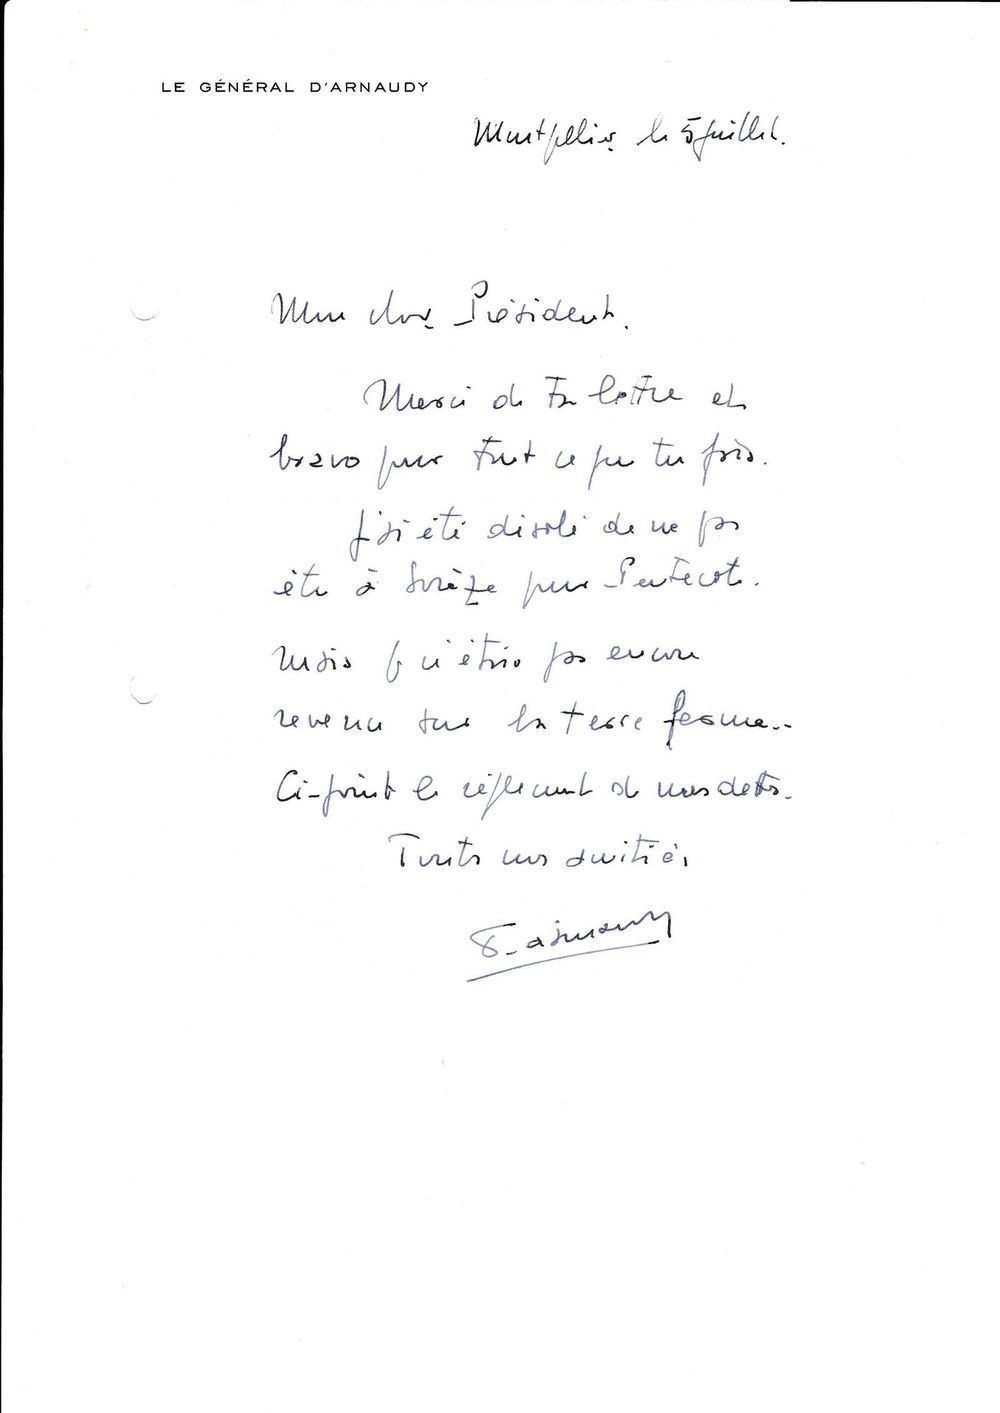 LE GÉNÉRAL D'ARNAUDY
Montpellier, le 5 juillet.
Mon cher Président,
Merci de ta lettre et
bravo pour tout ce que tu fais.
J'ai été désolé de ne pas
être à Sorèze pour Pentecôte.
Mais je n'étais pas encore
revenu sur la terre ferme..
Ci-joint le règlement de mes dettes.
Toutes mes amitiés,
d'Arnaudy